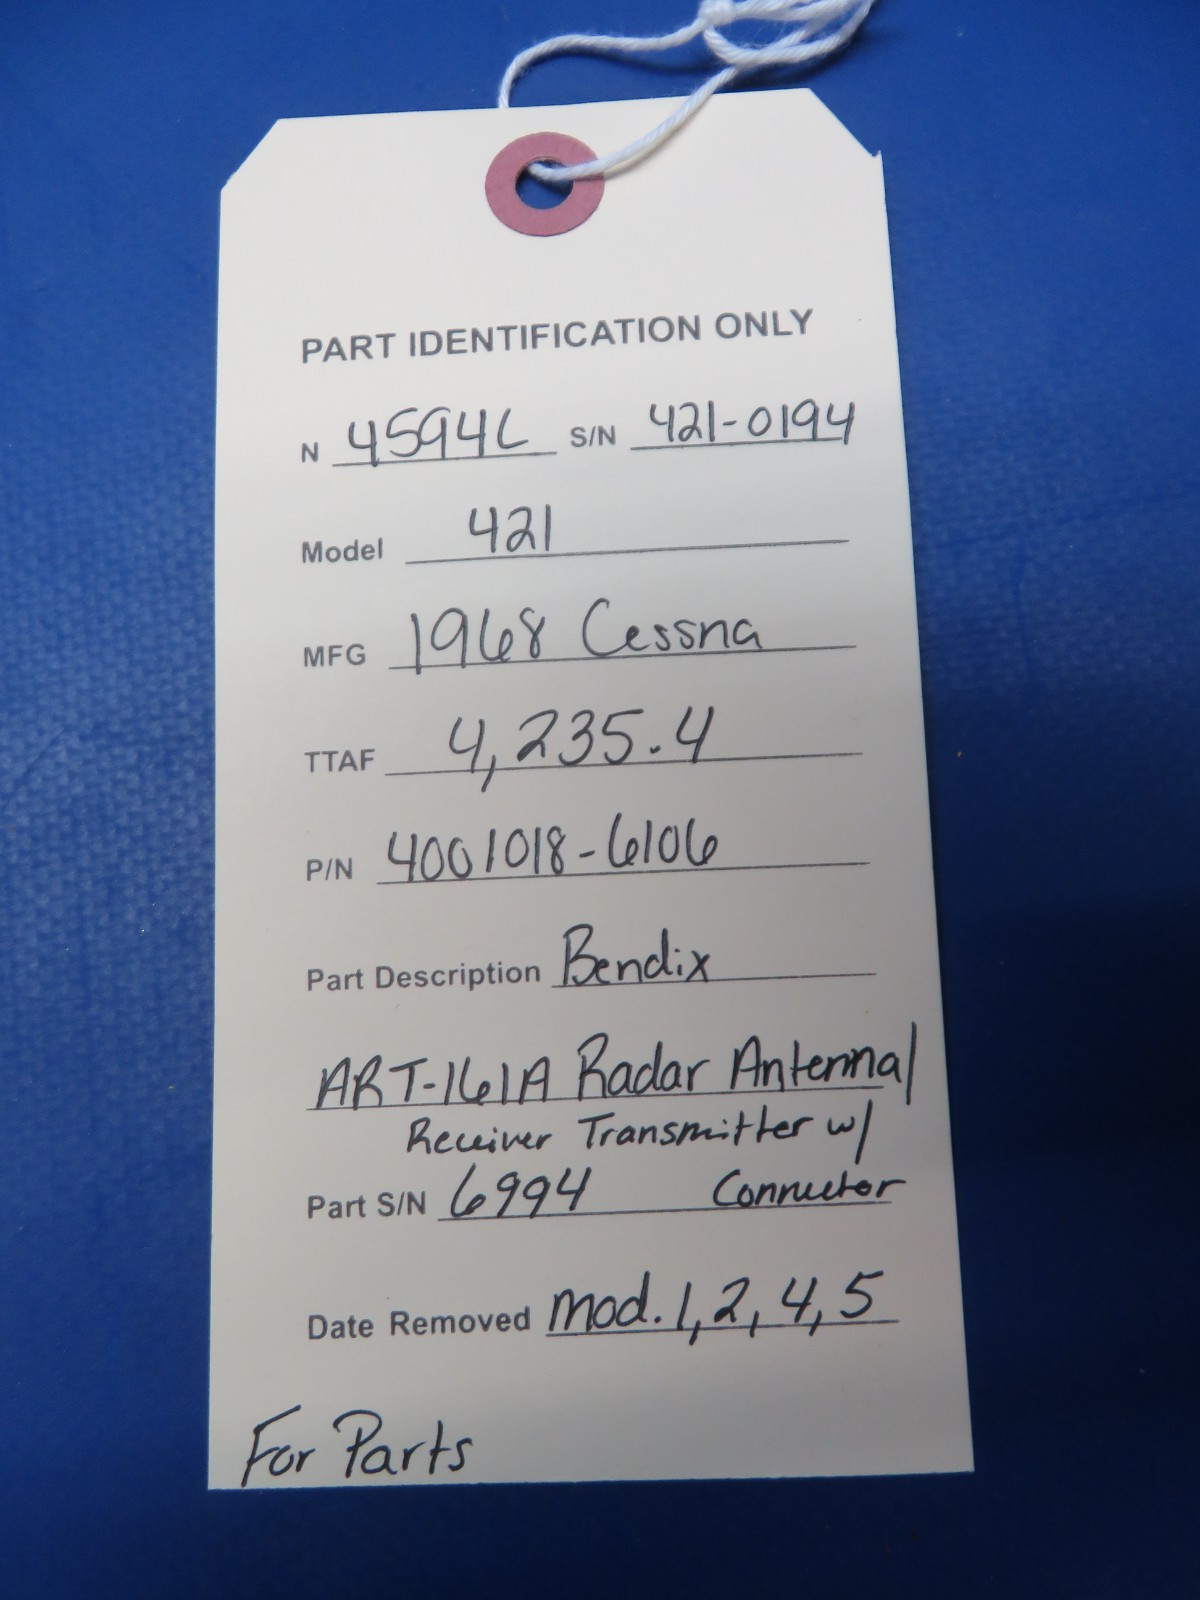 PART IDENTIFICATION ONLY
N 4594L S/N 421-0194
Model 421
MFG 1968 Cessna
TTAF 4,235.4
P/N 4001018-6106
Part Description Bendix
ART-161A Radar Antenna/
Receiver Transmitter w/
Part S/N 6994 Connector
Date Removed Mod. 1,2,4,5
For Parts